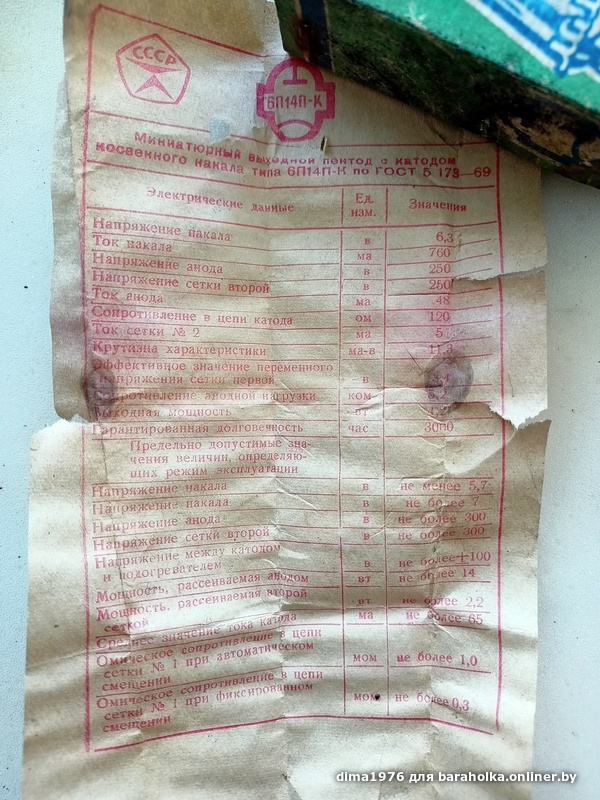 СССР
6П14П-К
Миниатюрный выходной пентод с катодом
косвенного накала типа 6П14П-К по ГОСТ 5 173—69
Электрические данные Ед. изм. Значения
Напряжение накала в 6,3
Ток накала ма 760
Напряжение анода в 250
Напряжение сетки второй в 250
Ток анода ма 48
Сопротивление в цепи катода ом 120
Ток сетки № 2 ма 5
Крутизна характеристики ма-в
Эффективное значение переменного
напряжения сетки первой в
Сопротивление анодной нагрузки ком
Выходная мощность вт
Гарантированная долговечность час. 3000
Предельно допустимые зна-
чения величин, определяю-
щих режим эксплуатации
Напряжение накала в не менее 5,7
Напряжение накала в не более 7
Напряжение анода в не более 300
Напряжение сетки второй в не более 300
Напряжение между катодом
и подогревателем в не более 100
Мощность, рассеиваемая анодом вт не более 14
Мощность, рассеиваемая второй
сеткой вт не более 2,2
Среднее значение тока катода ма не более 65
Омическое сопротивление в цепи
сетки № 1 при автоматическом
смещении мом не более 1,0
Омическое сопротивление в цепи
сетки № 1 при фиксированном
смещении мом не более 0,3
dima1976 для baraholka.onliner.by